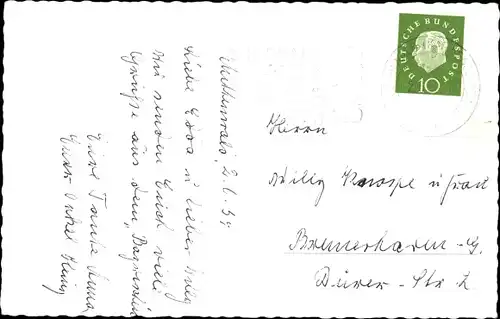 Mittenwald, 2.6.59
Liebe Erna u. lieber Willy
Wir senden Euch viele
Grüße aus dem "Bayrischen
Eure Tante Anna
Euer Onkel
DEUTSCHE BUNDESPOST
10
Herrn
Willy Knospe u. Frau
Bremerhaven - G.
Dürer - Str. 2